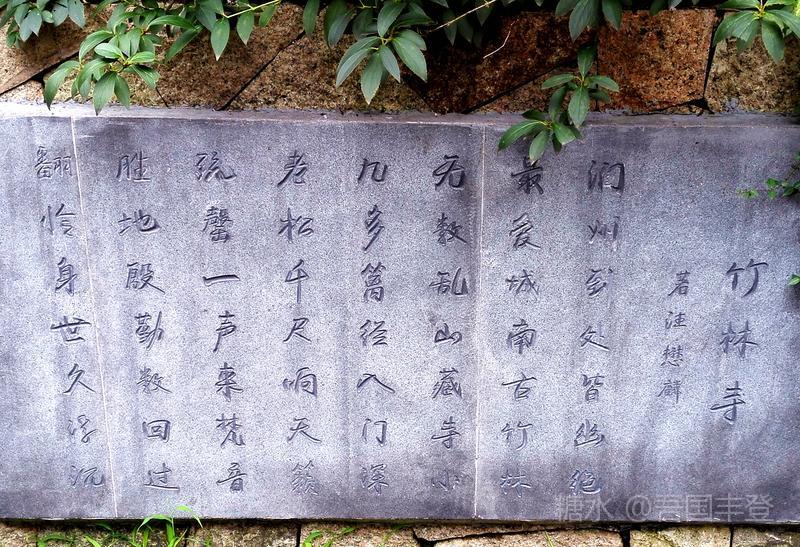 竹林寺
著汪懋麟
润州到处皆幽绝
最爱城南古竹林
无数乱山藏寺小
几多篱径入门深
老松千尺响天籁
疏磬一声来梵音
胜地殷勤数回过
翻怜身世久浮沉
糖水 @君国丰登